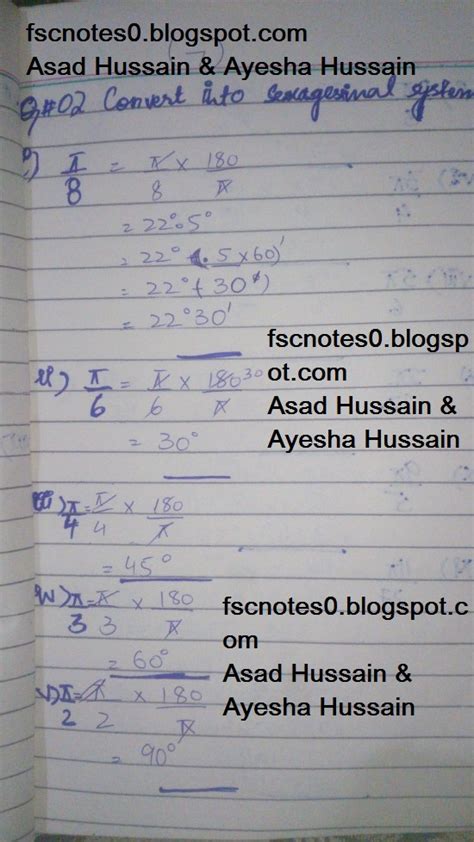 fscnotes0.blogspot.com
Asad Hussain & Ayesha Hussain
Q#02 Convert into sexagesimal system
i) π/8 = π/8 × 180/π
= 22°.5°
= 22° (.5×60)'
= 22° + 30')
= 22°30'
fscnotes0.blogsp
ot.com
Asad Hussain &
Ayesha Hussain
ii) π/6 = π/6 × 180 30/π
= 30°
iii) π/4 = π/4 × 180/π
= 45°
iv) π/3 = π/3 × 180/π
= 60°
fscnotes0.blogspot.c
om
Asad Hussain &
Ayesha Hussain
v) π/2 = π/2 × 180/π
= 90°